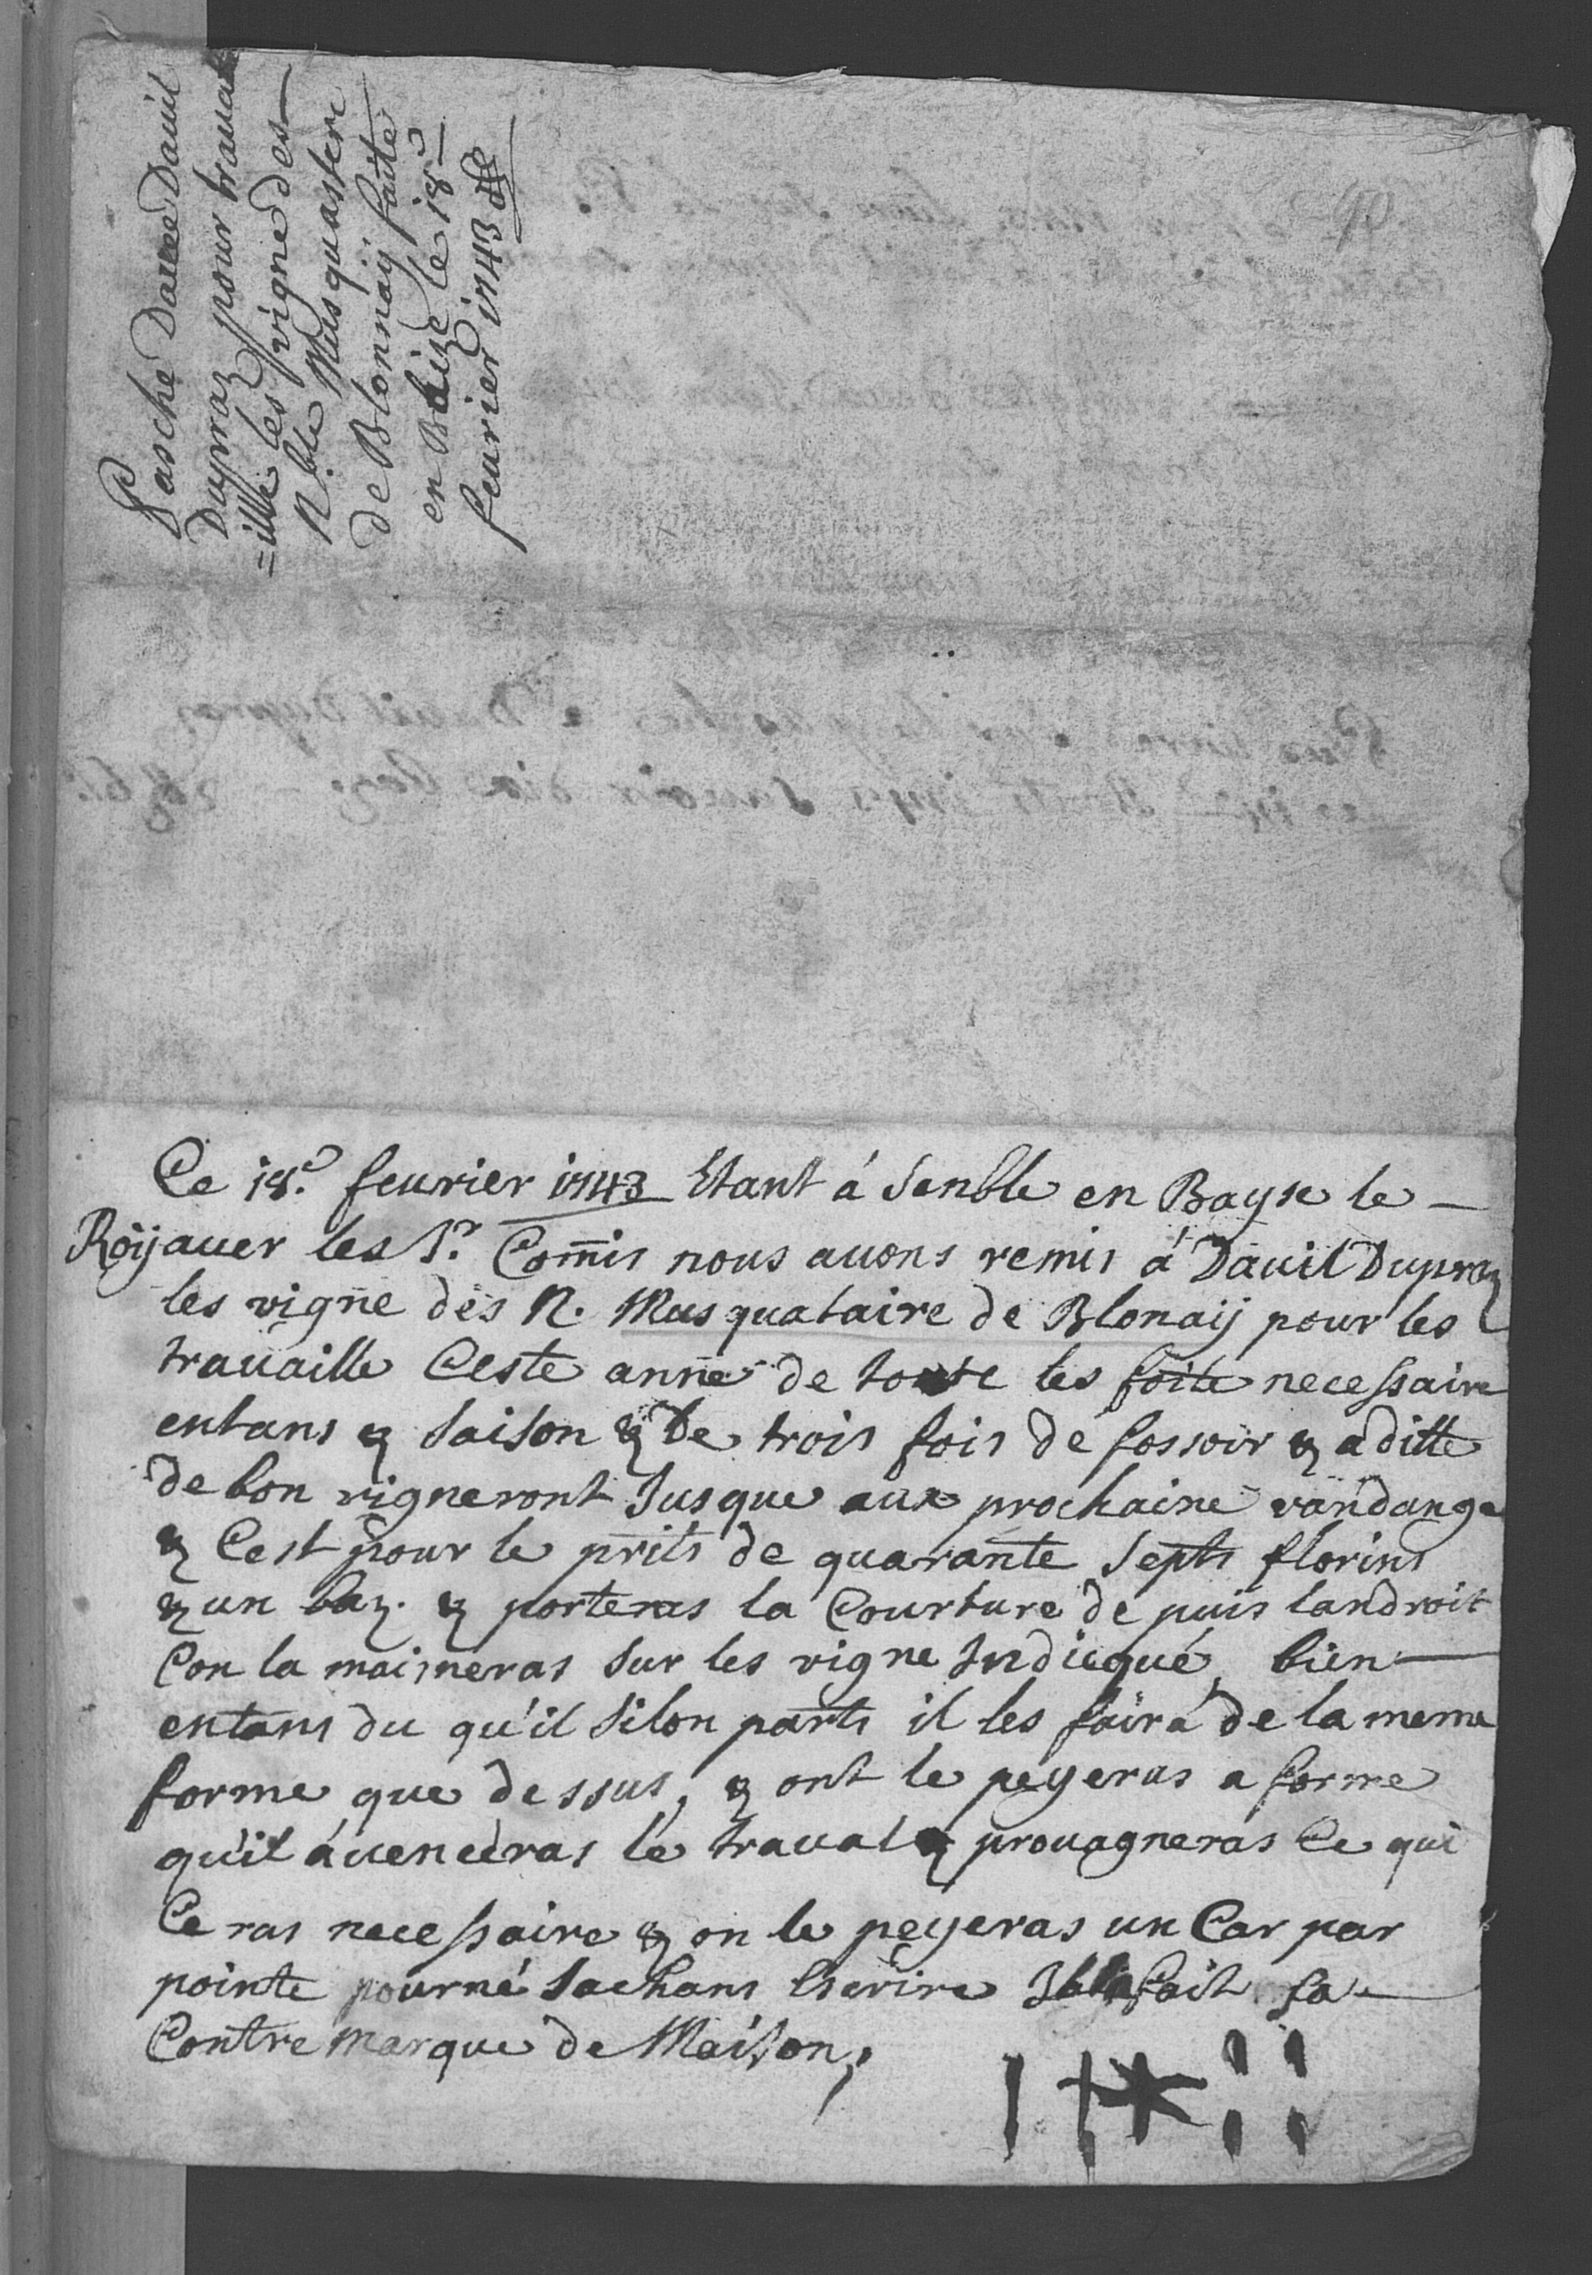 Pasche Davec David
Dupraz pour travai
=ille les vigne des
N.ble Musquastere
de Blonnaÿ faite
en Baize le 18e
feurier 1743
Ce 18.e feurier 1743 Etant á Senble en Bayse le
Roÿauer les S.r Com̄is nous auons remis á Dauit Dupraz
les vigne des N. Musquataire de Blonaÿ pour les
trauaille Ceste année de toute les foite necessaire
entans & Saison & De trois fois de fossoir & a ditte
de bon vigneront Jusque aux prochaine vandange
& Cest pour le prits de quarante Septs florins
& un baz. & porteras la Courture de puis landroit
Con la maineras sur les vigne Indicqué, bien
entans du qu'il Silon parts il les faira de la meme
forme que dessus, & ont le peyeras a forme
qu'il áuencéras le traual & prouagneras Ce qui
Ce ras necessaire & on le peyeras un Car par
pointe pour né Sachans Escrire Il la fait sa
Contre marque de Maison,